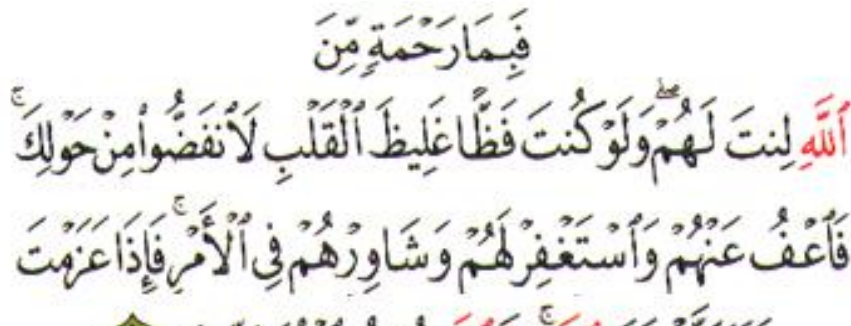 فَبِمَا رَحْمَةٍ مِّنَ
ٱللَّهِ لِنتَ لَهُمْ ۖ وَلَوْ كُنتَ فَظًّا غَلِيظَ ٱلْقَلْبِ لَٱنفَضُّوا۟ مِنْ حَوْلِكَ ۖ
فَٱعْفُ عَنْهُمْ وَٱسْتَغْفِرْ لَهُمْ وَشَاوِرْهُمْ فِى ٱلْأَمْرِ ۖ فَإِذَا عَزَمْتَ